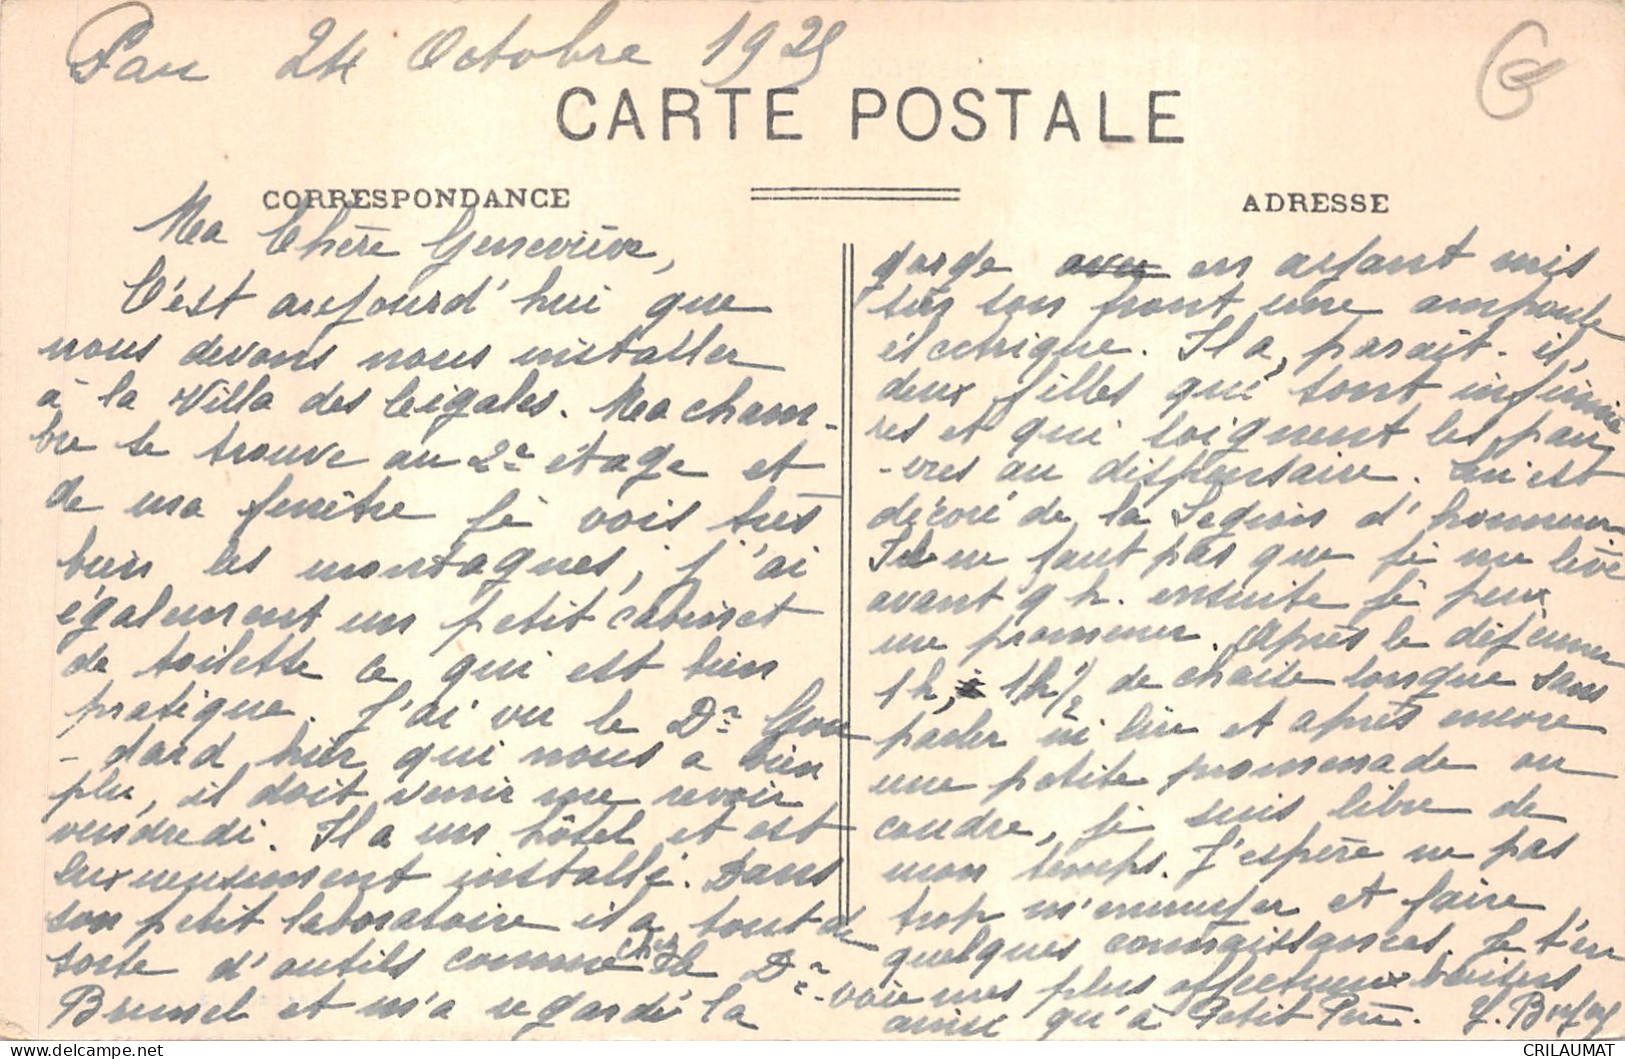 Pau 24 Octobre 1925
CARTE POSTALE
CORRESPONDANCE
ADRESSE
Ma Chère Geneviève,
C'est aujourd'hui que
nous devons nous installer
à la Villa des Cigales. Ma cham-
bre se trouve au 2e étage et
de ma fenêtre je vois très
bien les montagnes, j'ai
également un petit cabinet
de toilette ce qui est bien
pratique. J'ai vu le Dr Gou
-dard hier qui nous a bien
plu, il doit venir me revoir
vendredi. Il a un hôtel et est
luxueusement installé. Dans
son petit laboratoire il a tout de
sorte d'outils comme chez le Dr
Brunel et m'a regardé la
gorge en
mis
sur son front une ampoule
électrique. Il a, paraît-il,
deux filles qui sont infirmiè
res et qui soignent les pau
-vres au dispensaire. Lui est
décoré de la Légion d'honneur
Il ne faut pas que je me lève
avant 9 h. ensuite je peux
me promener. Après le déjeuner
1h, à 1h 1/2 de chaise longue sans
parler ni lire et après encore
une petite promenade ou
coudre, je suis libre de
mon temps. J'espère ne pas
trop m'ennuyer et faire
quelques connaissances. Je t'en
-voie mes plus affectueux baisers
ainsi qu'à Petit Père. G.
CRILAUMAT